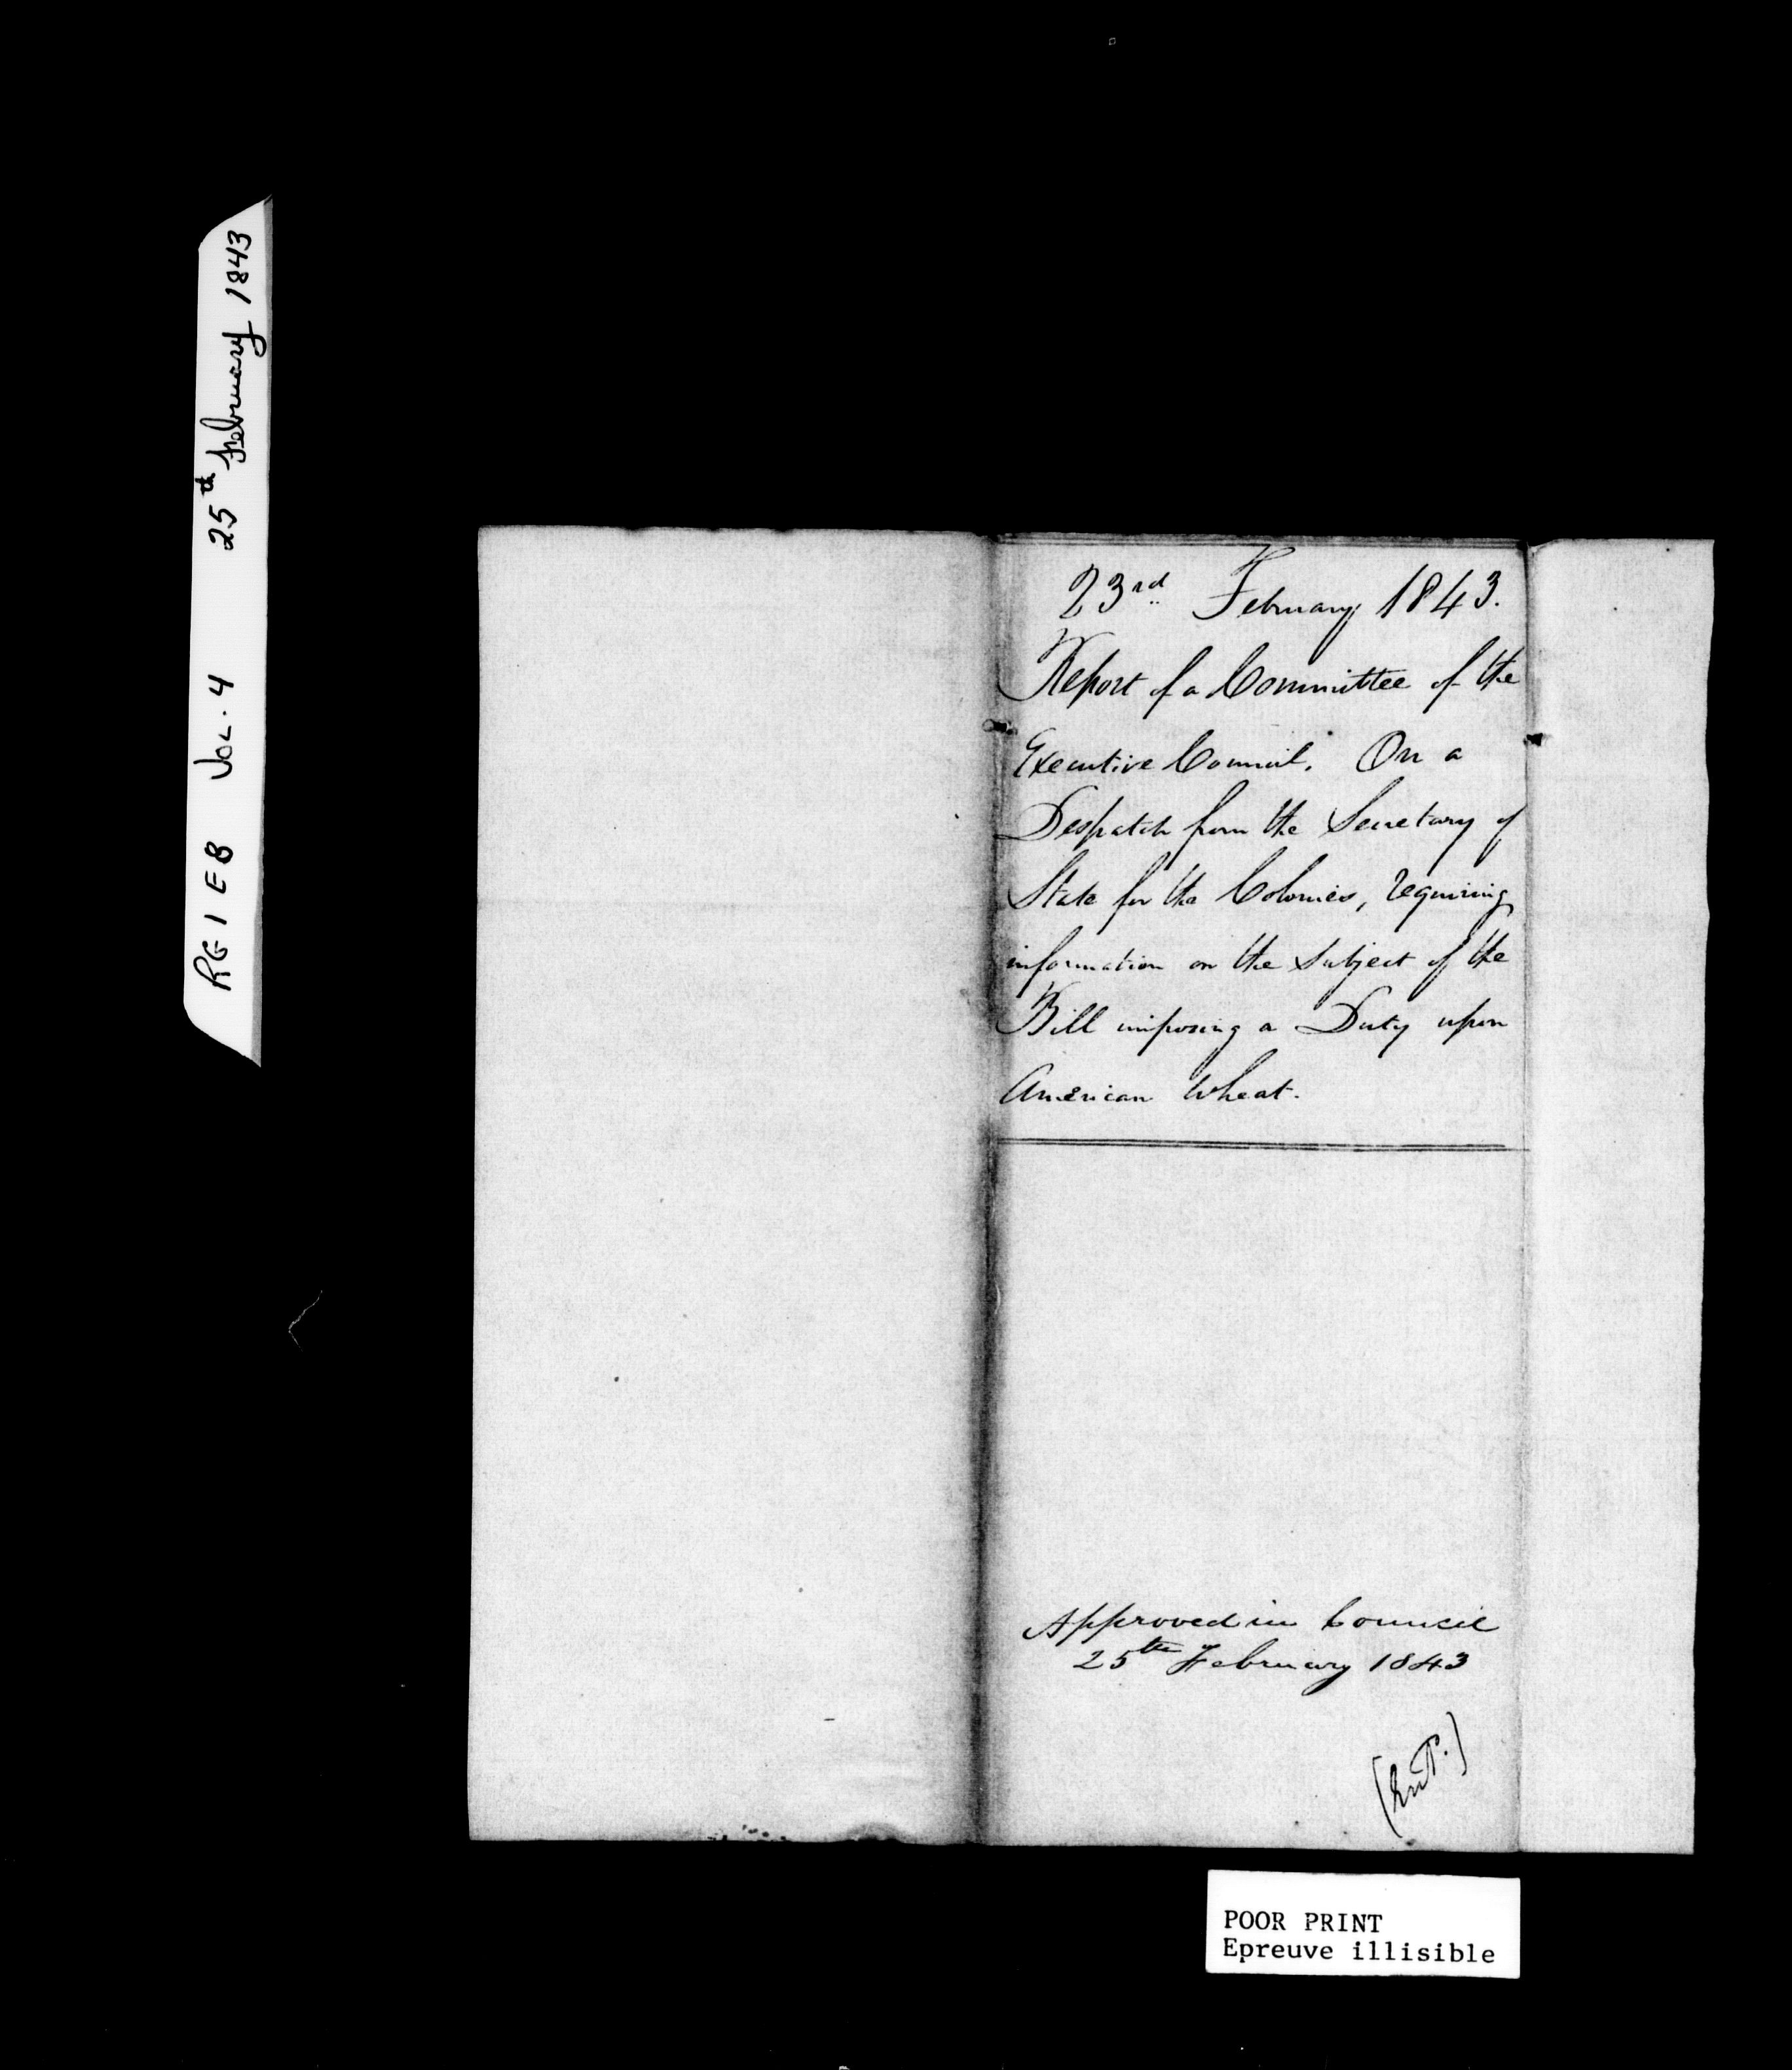 RG 1 E 8 Vol. 4 25th February 1843
23rd February 1843.
Report of a Committee of the
Executive Council. On a
Despatch from the Secretary of
State for the Colonies, requiring
information on the subject of the
Bill imposing a Duty upon
American Wheat.
Approved in Council
25th February 1843
POOR PRINT
Epreuve illisible